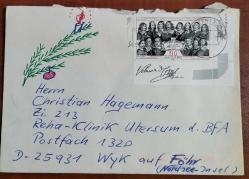 80
Herrn
Christian Hagemann
Zi. 213
Reha-Klinik Utersum d. BfA
Postfach 1320
D-25931 Wyk auf Föhr
(Nordsee-Insel)